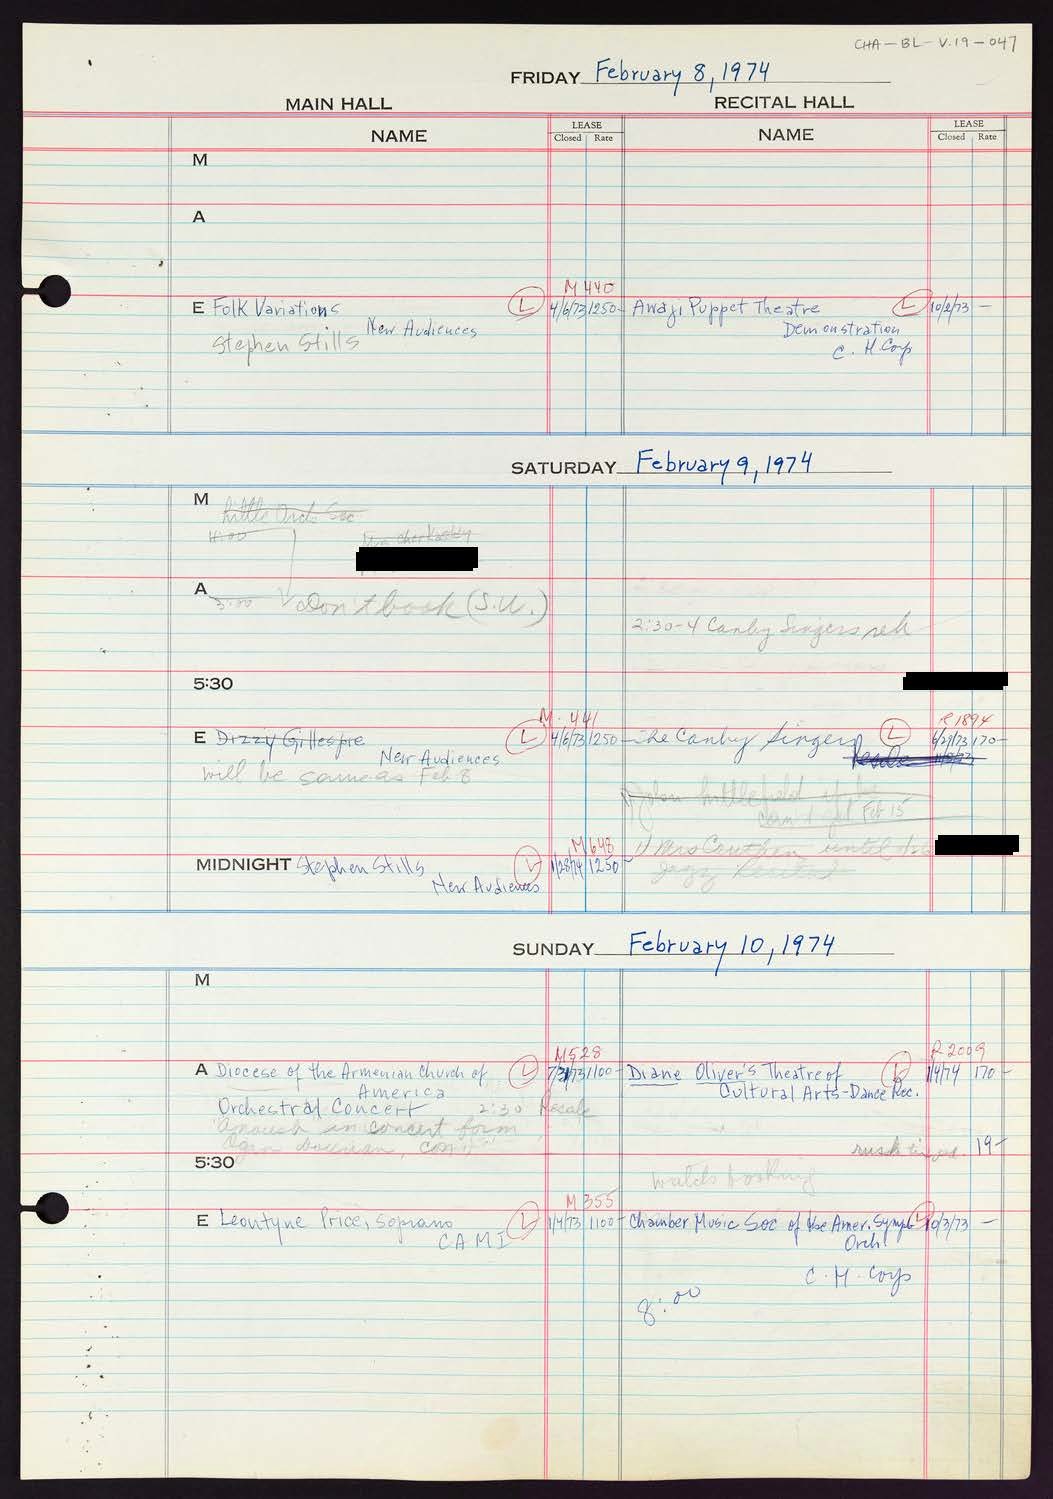 CHA-BL-V.19-047
FRIDAY February 8, 1974
MAIN HALL
RECITAL HALL
NAME
LEASE
Closed Rate
NAME
LEASE
Closed Rate
M
A
M 440
E Folk Variations L 4/6/73 1250- Awaji Puppet Theatre L 10/2/73 -
New Audiences Demonstration
Stephen Stills C. H. Corp
SATURDAY February 9, 1974
M
Little Orch Soc
11:00
A 3:00
Don't book (S.U.)
2:30-4 Canby Singers reh
5:30
M. 441 R 1894
E Dizzy Gillespie L 4/6/73 1250- The Canby Singers L 6/21/73 170-
New Audiences Resale
will be same as Feb 8
John Littlefield if he
can't get Feb 15
M 648
1) Mrs until
MIDNIGHT Stephen Stills L 1/28/74 1250-
New Audiences
Jazz Recital
SUNDAY February 10, 1974
M
M528 R 2009
A Diocese of the Armenian Church of L 7/31/73 1100- Diane Oliver's Theatre of L 1/4/74 170-
America Cultural Arts-Dance Rec.
Orchestral Concert 2:30 Resale
"Anoush in concert form
cond."
rush 19-
5:30
watch booking
M 355
E Leontyne Price, soprano L 1/4/73 1100- Chamber Music Soc of the Amer. Symph L 10/3/73 -
CAMI Orch
C. H. Corp
8:00